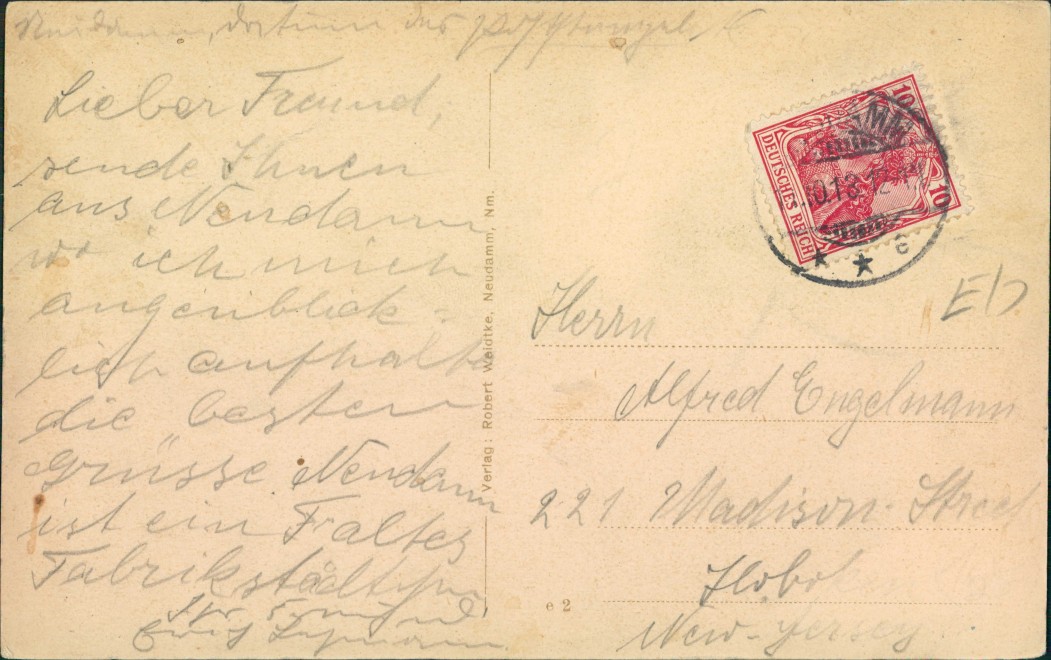 Neudamm,
Lieber Freund,
sende Ihnen
aus Neudamm
wo ich mich
augenblick-
lich aufhalte
die besten
Grüsse Neudamm
ist ein altes
Fabrikstädtchen
Verlag: Robert Weidtke, Neudamm, Nm.
e 2
DEUTSCHES REICH
10
10
★ ★ c
Herrn
Alfred Engelmann
221 Madison Street
Hoboken
New-Jersey